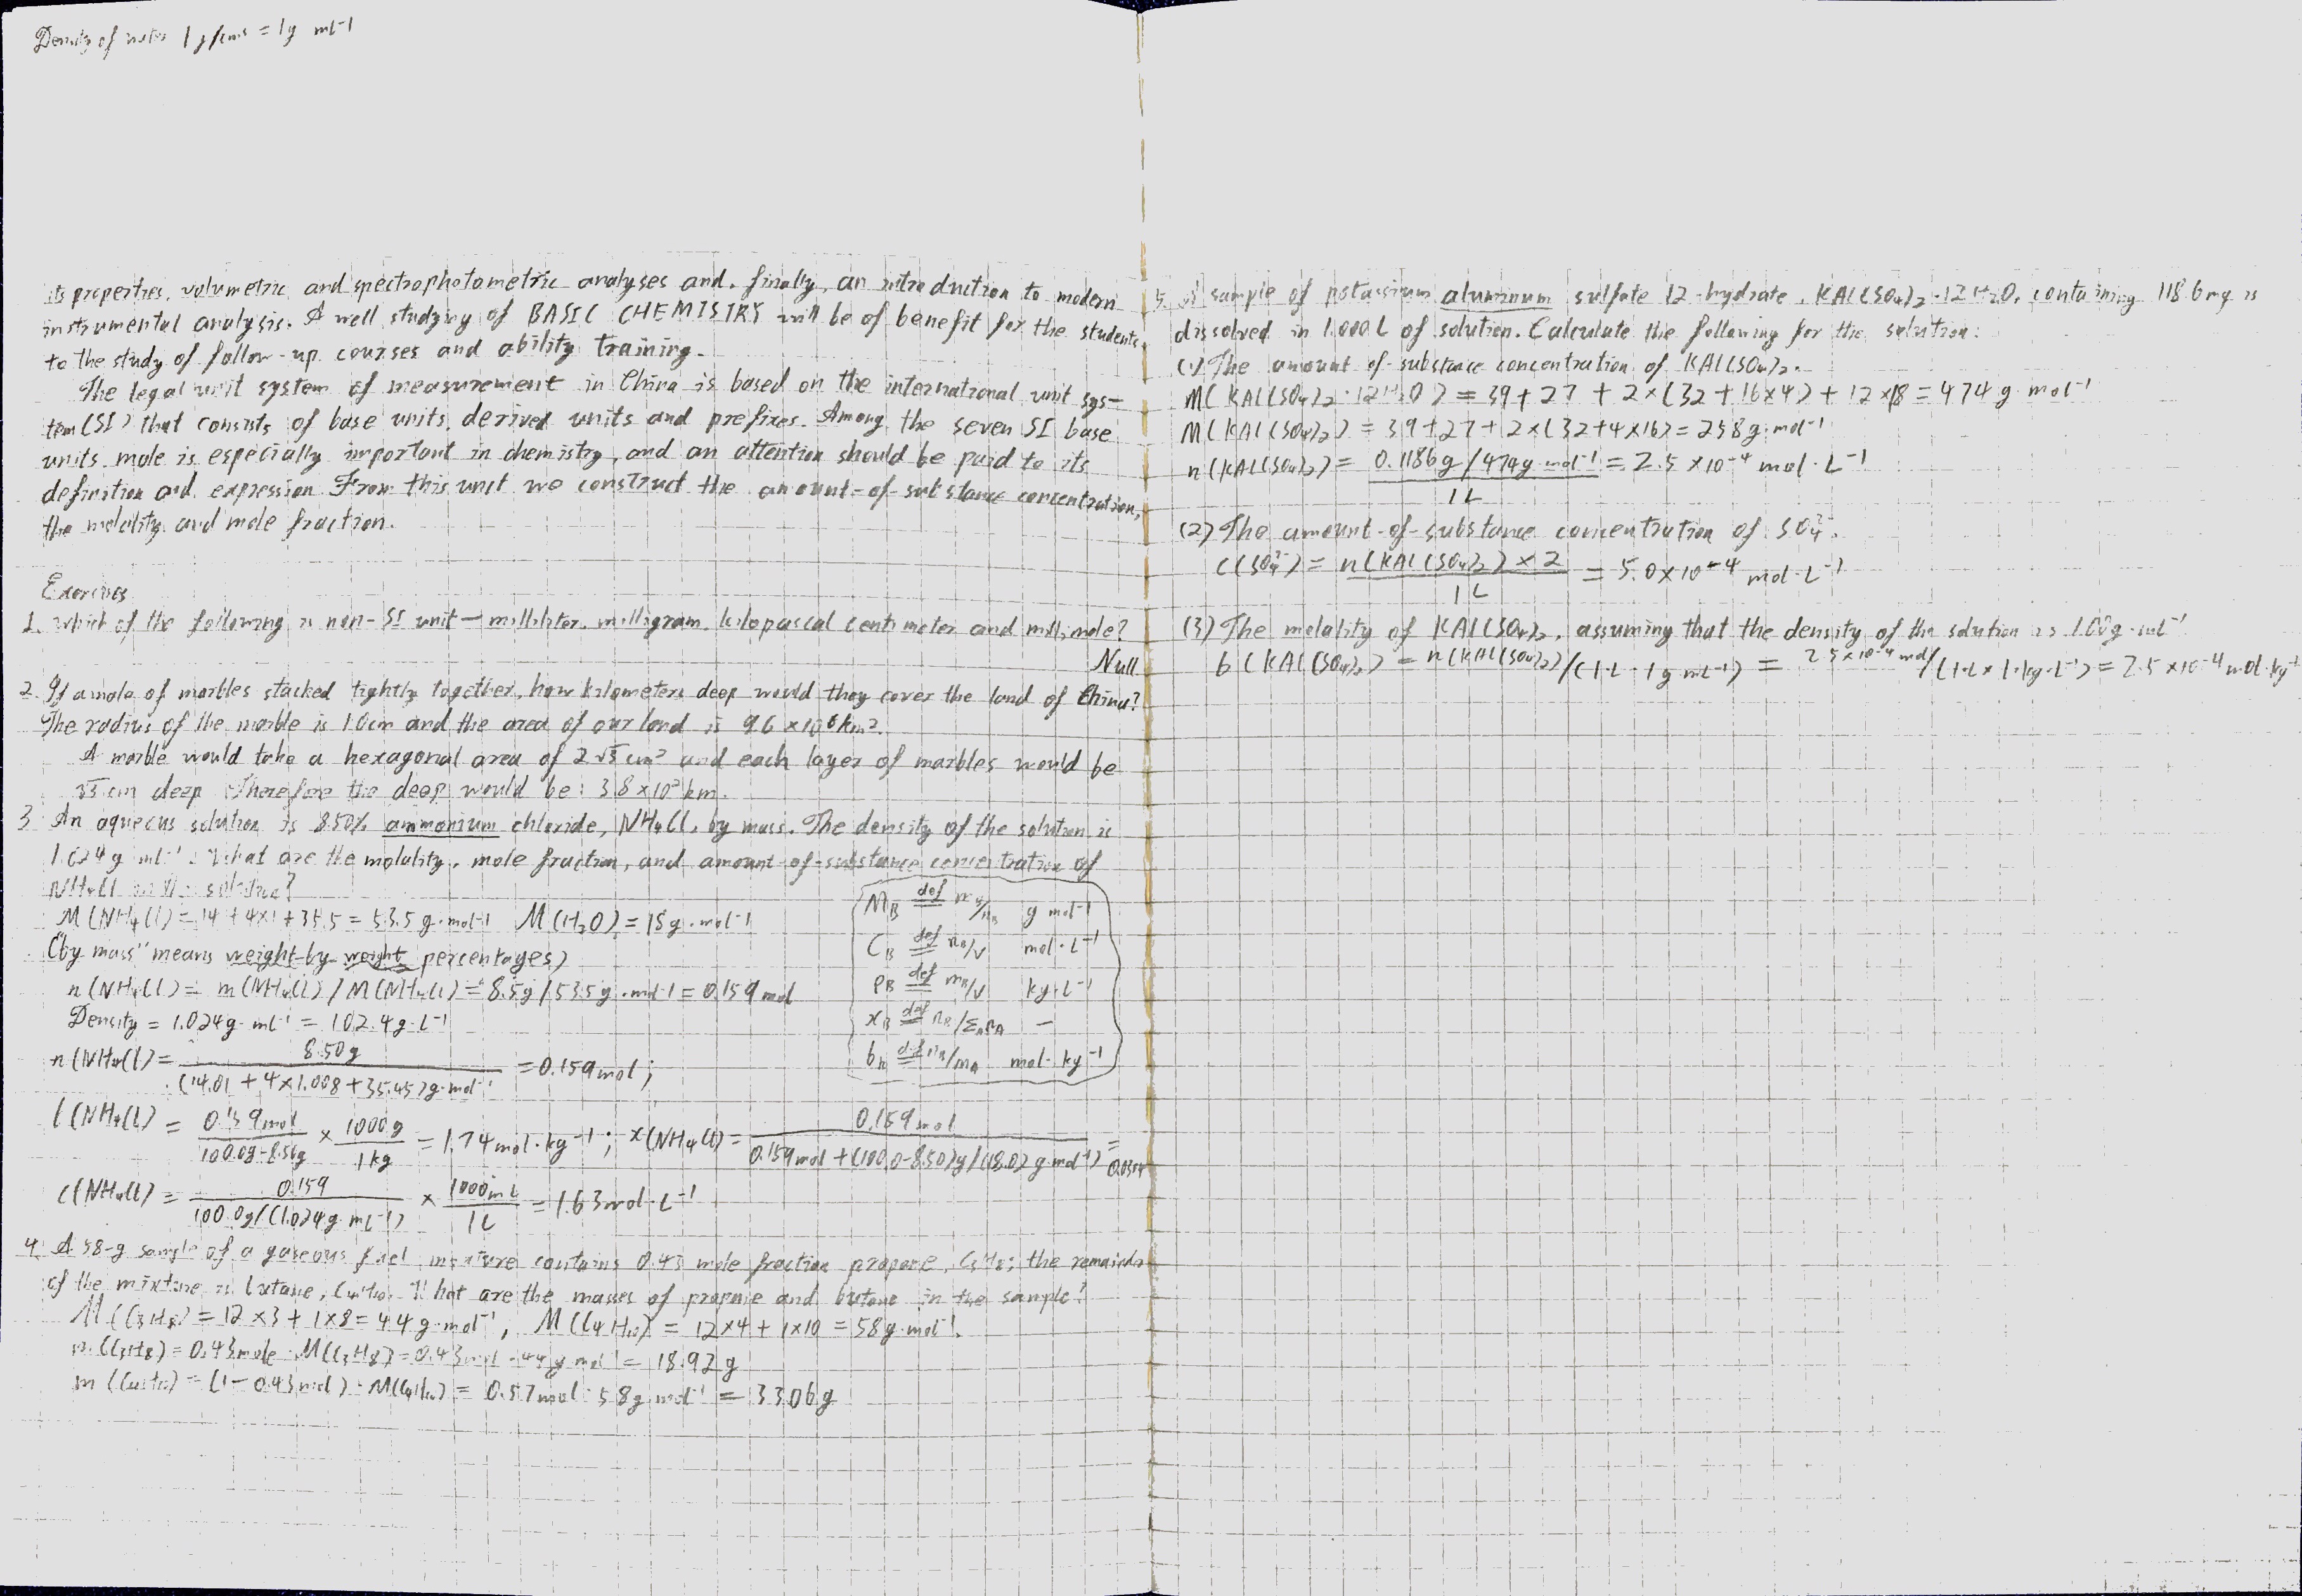 Density of water 1 g/cm³ = 1g mL⁻¹
its properties, volumetric and spectrophotometric analyses and, finally, an introduction to modern
instrumental analysis. A well studying of BASIC CHEMISTRY will be of benefit for the students
to the study of follow-up courses and ability training.
The legal unit system of measurement in China is based on the international unit sys-
tem (SI) that consists of base units, derived units and prefixes. Among the seven SI base
units mole is especially important in chemistry, and an attention should be paid to its
definition and expression. From this unit we construct the amount-of-substance concentration,
the molality and mole fraction.
Exercises
1. Which of the following is non-SI unit — milliliter, milligram, kilopascal centimeter and millimole?
Null
2. If a mole of marbles stacked tightly together, how kilometers deep would they cover the land of China?
The radius of the marble is 1.0cm and the area of our land is 9.6×10⁶km².
A marble would take a hexagonal area of 2√3 cm² and each layer of marbles would be
√3 cm deep. Therefore the deep would be: 3.8×10² km.
3. An aqueous solution is 8.50% ammonium chloride, NH₄Cl, by mass. The density of the solution is
1.024 g mL⁻¹. What are the molality, mole fraction, and amount-of-substance concentration of
NH₄Cl in the solution?
M(NH₄Cl) = 14 + 4×1 + 35.5 = 53.5 g·mol⁻¹ M(H₂O) = 18 g·mol⁻¹
("by mass" means weight-by-weight percentages)
n(NH₄Cl) = m(NH₄Cl) / M(NH₄Cl) = 8.5g / 53.5g·mol⁻¹ = 0.159 mol
Density = 1.024g·mL⁻¹ = 102.4g·L⁻¹
n(NH₄Cl) = 8.50g / (14.01 + 4×1.008 + 35.45)g·mol⁻¹ = 0.159mol;
b(NH₄Cl) = 0.159mol / 100.0g-8.50g × 1000g / 1kg = 1.74 mol·kg⁻¹; x(NH₄Cl) = 0.159mol / 0.159mol + (100.0-8.50)g/(18.02 g·mol⁻¹) =
c(NH₄Cl) = 0.159 / 100.0g/(1.024g·mL⁻¹) × 1000mL / 1L = 1.63mol·L⁻¹
M_B def m_B/n_B g mol⁻¹
C_B def n_B/V mol·L⁻¹
ρ_B def m_B/V kg·L⁻¹
x_B def n_B/Σ_A n_A —
b_B def n_B/m_A mol·kg⁻¹
4. A 58-g sample of a gaseous fuel mixture contains 0.43 mole fraction propane, C₃H₈; the remainder
of the mixture is butane, C₄H₁₀. What are the masses of propane and butane in the sample?
M(C₃H₈) = 12×3 + 1×8 = 44 g·mol⁻¹, M(C₄H₁₀) = 12×4 + 1×10 = 58g·mol⁻¹.
m(C₃H₈) = 0.43mole·M(C₃H₈) = 0.43mol·44g mol⁻¹ = 18.92 g
m(C₄H₁₀) = (1-0.43mol)·M(C₄H₁₀) = 0.57mol·58g mol⁻¹ = 33.06g
5. A sample of potassium aluminum sulfate 12-hydrate, KAl(SO₄)₂·12H₂O, containing 118.6mg is
dissolved in 1.000L of solution. Calculate the following for the solution:
(1) The amount-of-substance concentration of KAl(SO₄)₂.
M(KAl(SO₄)₂·12H₂O) = 39+27 + 2×(32+16×4) + 12×18 = 474 g mol⁻¹
M(KAl(SO₄)₂) = 39+27+2×(32+4×16) = 258g·mol⁻¹
n(KAl(SO₄)₂) = 0.1186g/474g·mol⁻¹ / 1L = 2.5×10⁻⁴ mol·L⁻¹
(2) The amount-of-substance concentration of SO₄²⁻.
c(SO₄²⁻) = n(KAl(SO₄)₂)×2 / 1L = 5.0×10⁻⁴ mol·L⁻¹
(3) The molality of KAl(SO₄)₂, assuming that the density of the solution is 1.00g·mL⁻¹
b(KAl(SO₄)₂) = n(KAl(SO₄)₂)/(1L·1g mL⁻¹) = 2.5×10⁻⁴ mol/(1L×1·kg·L⁻¹) = 2.5×10⁻⁴ mol·kg⁻¹